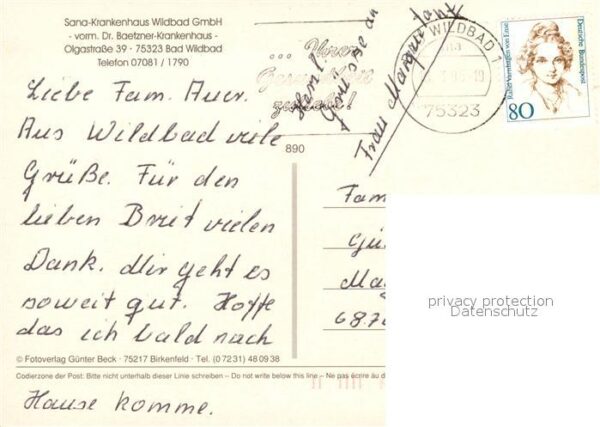 Sana-Krankenhaus Wildbad GmbH
- vorm. Dr. Baetzner-Krankenhaus -
Olgastraße 39 · 75323 Bad Wildbad
Telefon 07081 / 1790
... Ihrer
Gesundheit
zuliebe!
WILDBAD 1
75323
Rahel Varnhagen von Ense
Deutsche Bundespost
80
Liebe Fam. Auer.
Aus Wildbad viele
Grüße. Für den
lieben Brief vielen
Dank. Mir geht es
soweit gut. Hoffe
das ich bald nach
Hause komme.
Grüsse an
Frau
890
Fam
Gü
Ma
68.7
privacy protection
Datenschutz
© Fotoverlag Günter Beck · 75217 Birkenfeld · Tel. (0 72 31) 48 09 38
Codierzone der Post: Bitte nicht unterhalb dieser Linie schreiben – Do not write below this line – Ne pas écrire au d